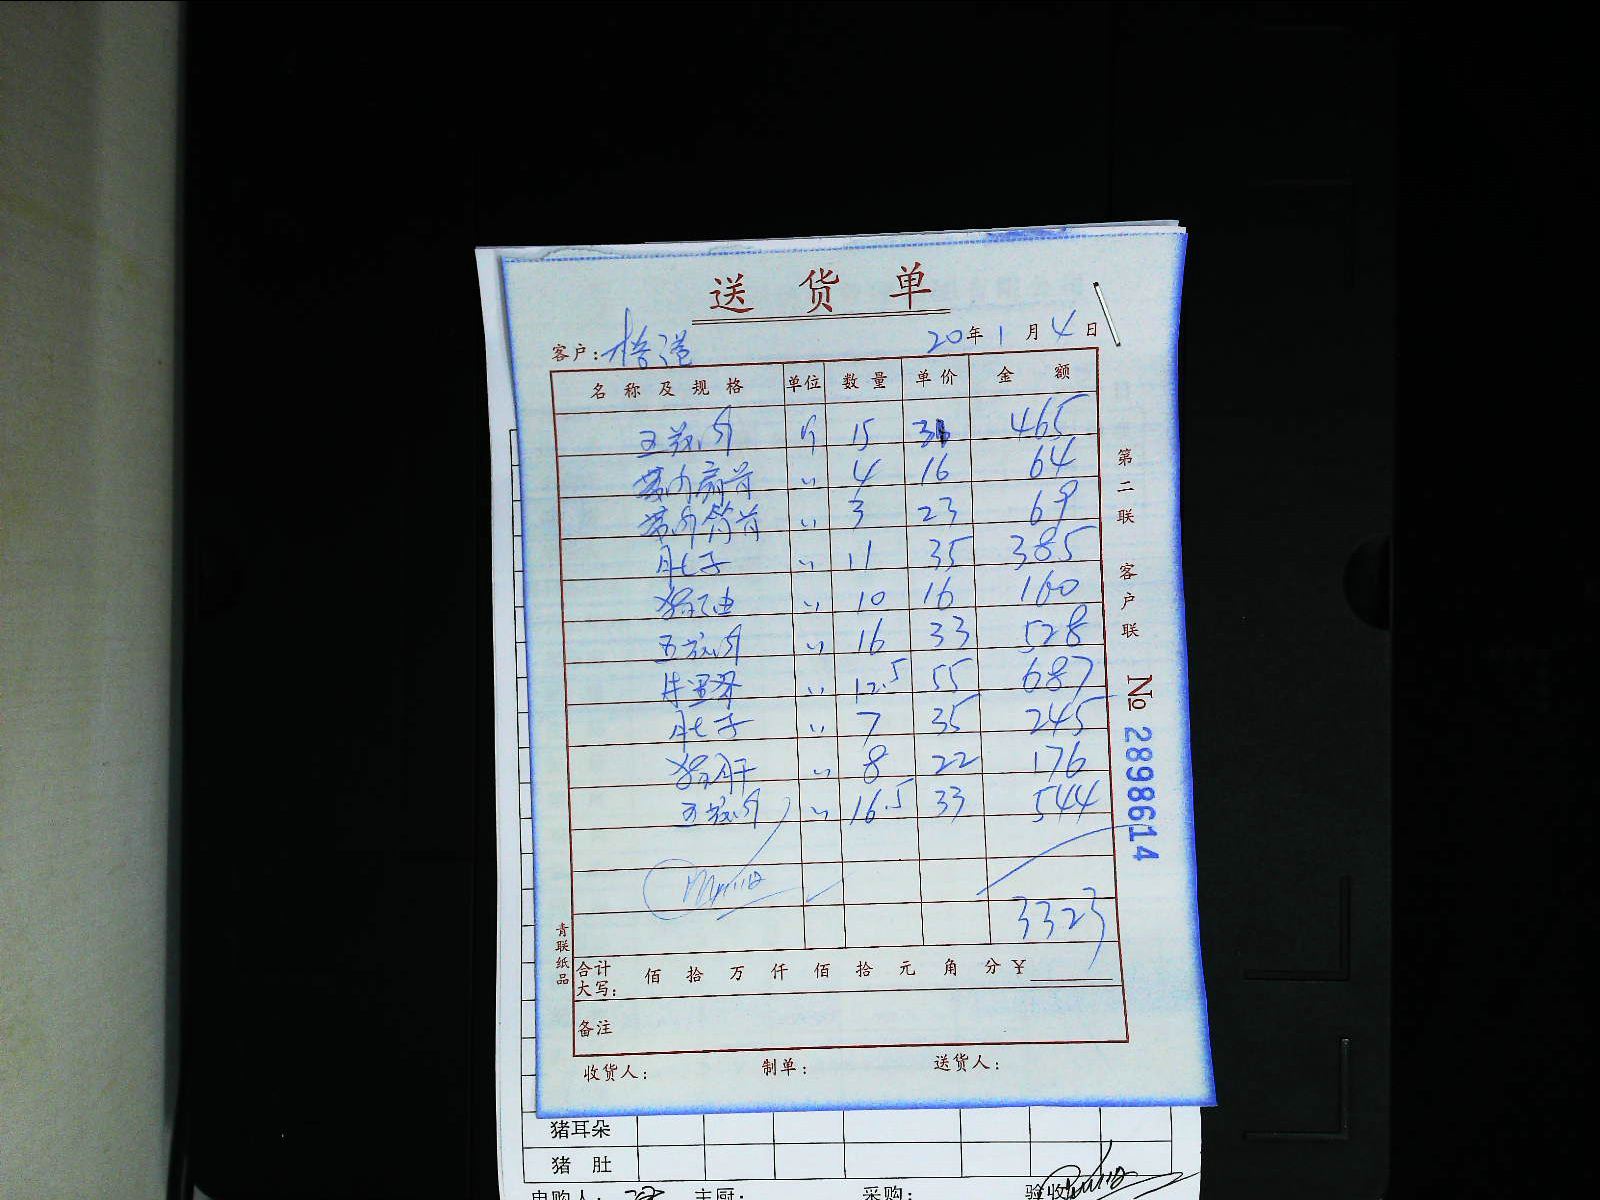 送 货 单
客户:
20年 1 月 4 日
名 称 及 规 格 单位 数 量 单 价 金 额
五花肉 斤 15 31 465
带肉扇骨 〃 4 16 64
带肉筒骨 〃 3 23 69
肚子 〃 11 35 385
〃 10 16 160
五花肉 〃 16 33 528
〃 12.5 55 687
肚子 〃 7 35 245
猪肝 〃 8 22 176
五花肉 〃 16.5 33 544
3323
合计大写: 佰 拾 万 仟 佰 拾 元 角 分 ¥
备注
收货人: 制单: 送货人:
第二联 客户联
№ 2898614
青联纸品
猪耳朵
猪 肚
申购人: 主厨: 采购: 验收